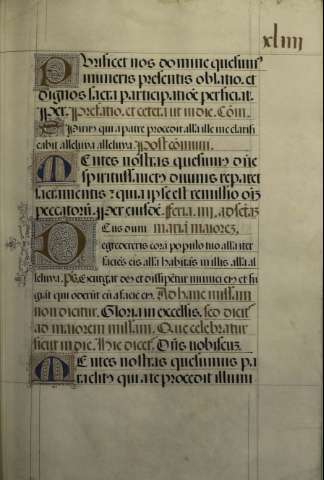 xliiii
Purificet nos domine quesumꝰ
muneris presentis oblatio. et
dignos sacra participatiōe perficiat.
ꝑ xp̄z. Prefatio. et cetera ut in die. Cōm.
Spiritus qui a patre procedit alľa ille me clarifi
cabit alleluya alleluya. Post comun.
Mentes nostras quesum᷒ dn̄e
spiritus sanctus diuinis reparet
sacramentis: quia ipse est remissio oīz
peccatorū. ꝑ xp̄z eiusdē. Feria. iiij. ad sctāz
mariā maiorez.
Deus dum
egredereris corā populo tuo alľa iter
faciēs eis alľa habitās in illis alľa al
leluya. Ps. Exurgat deꝰ et dissipētur inimici eiꝰ et fu
giāt qui oderūt eū a facie eiꝰ. Ad hanc missam
non dicitur. Gloria in excelsis. sed dicit᷑
ad maiorem missam. Que celebratur
sicut in die. Hic dicet᷑. Dn̄s uobiscuz.
Mentes nostras quesumus pa
raclitꝰ qui a te procedit illumi